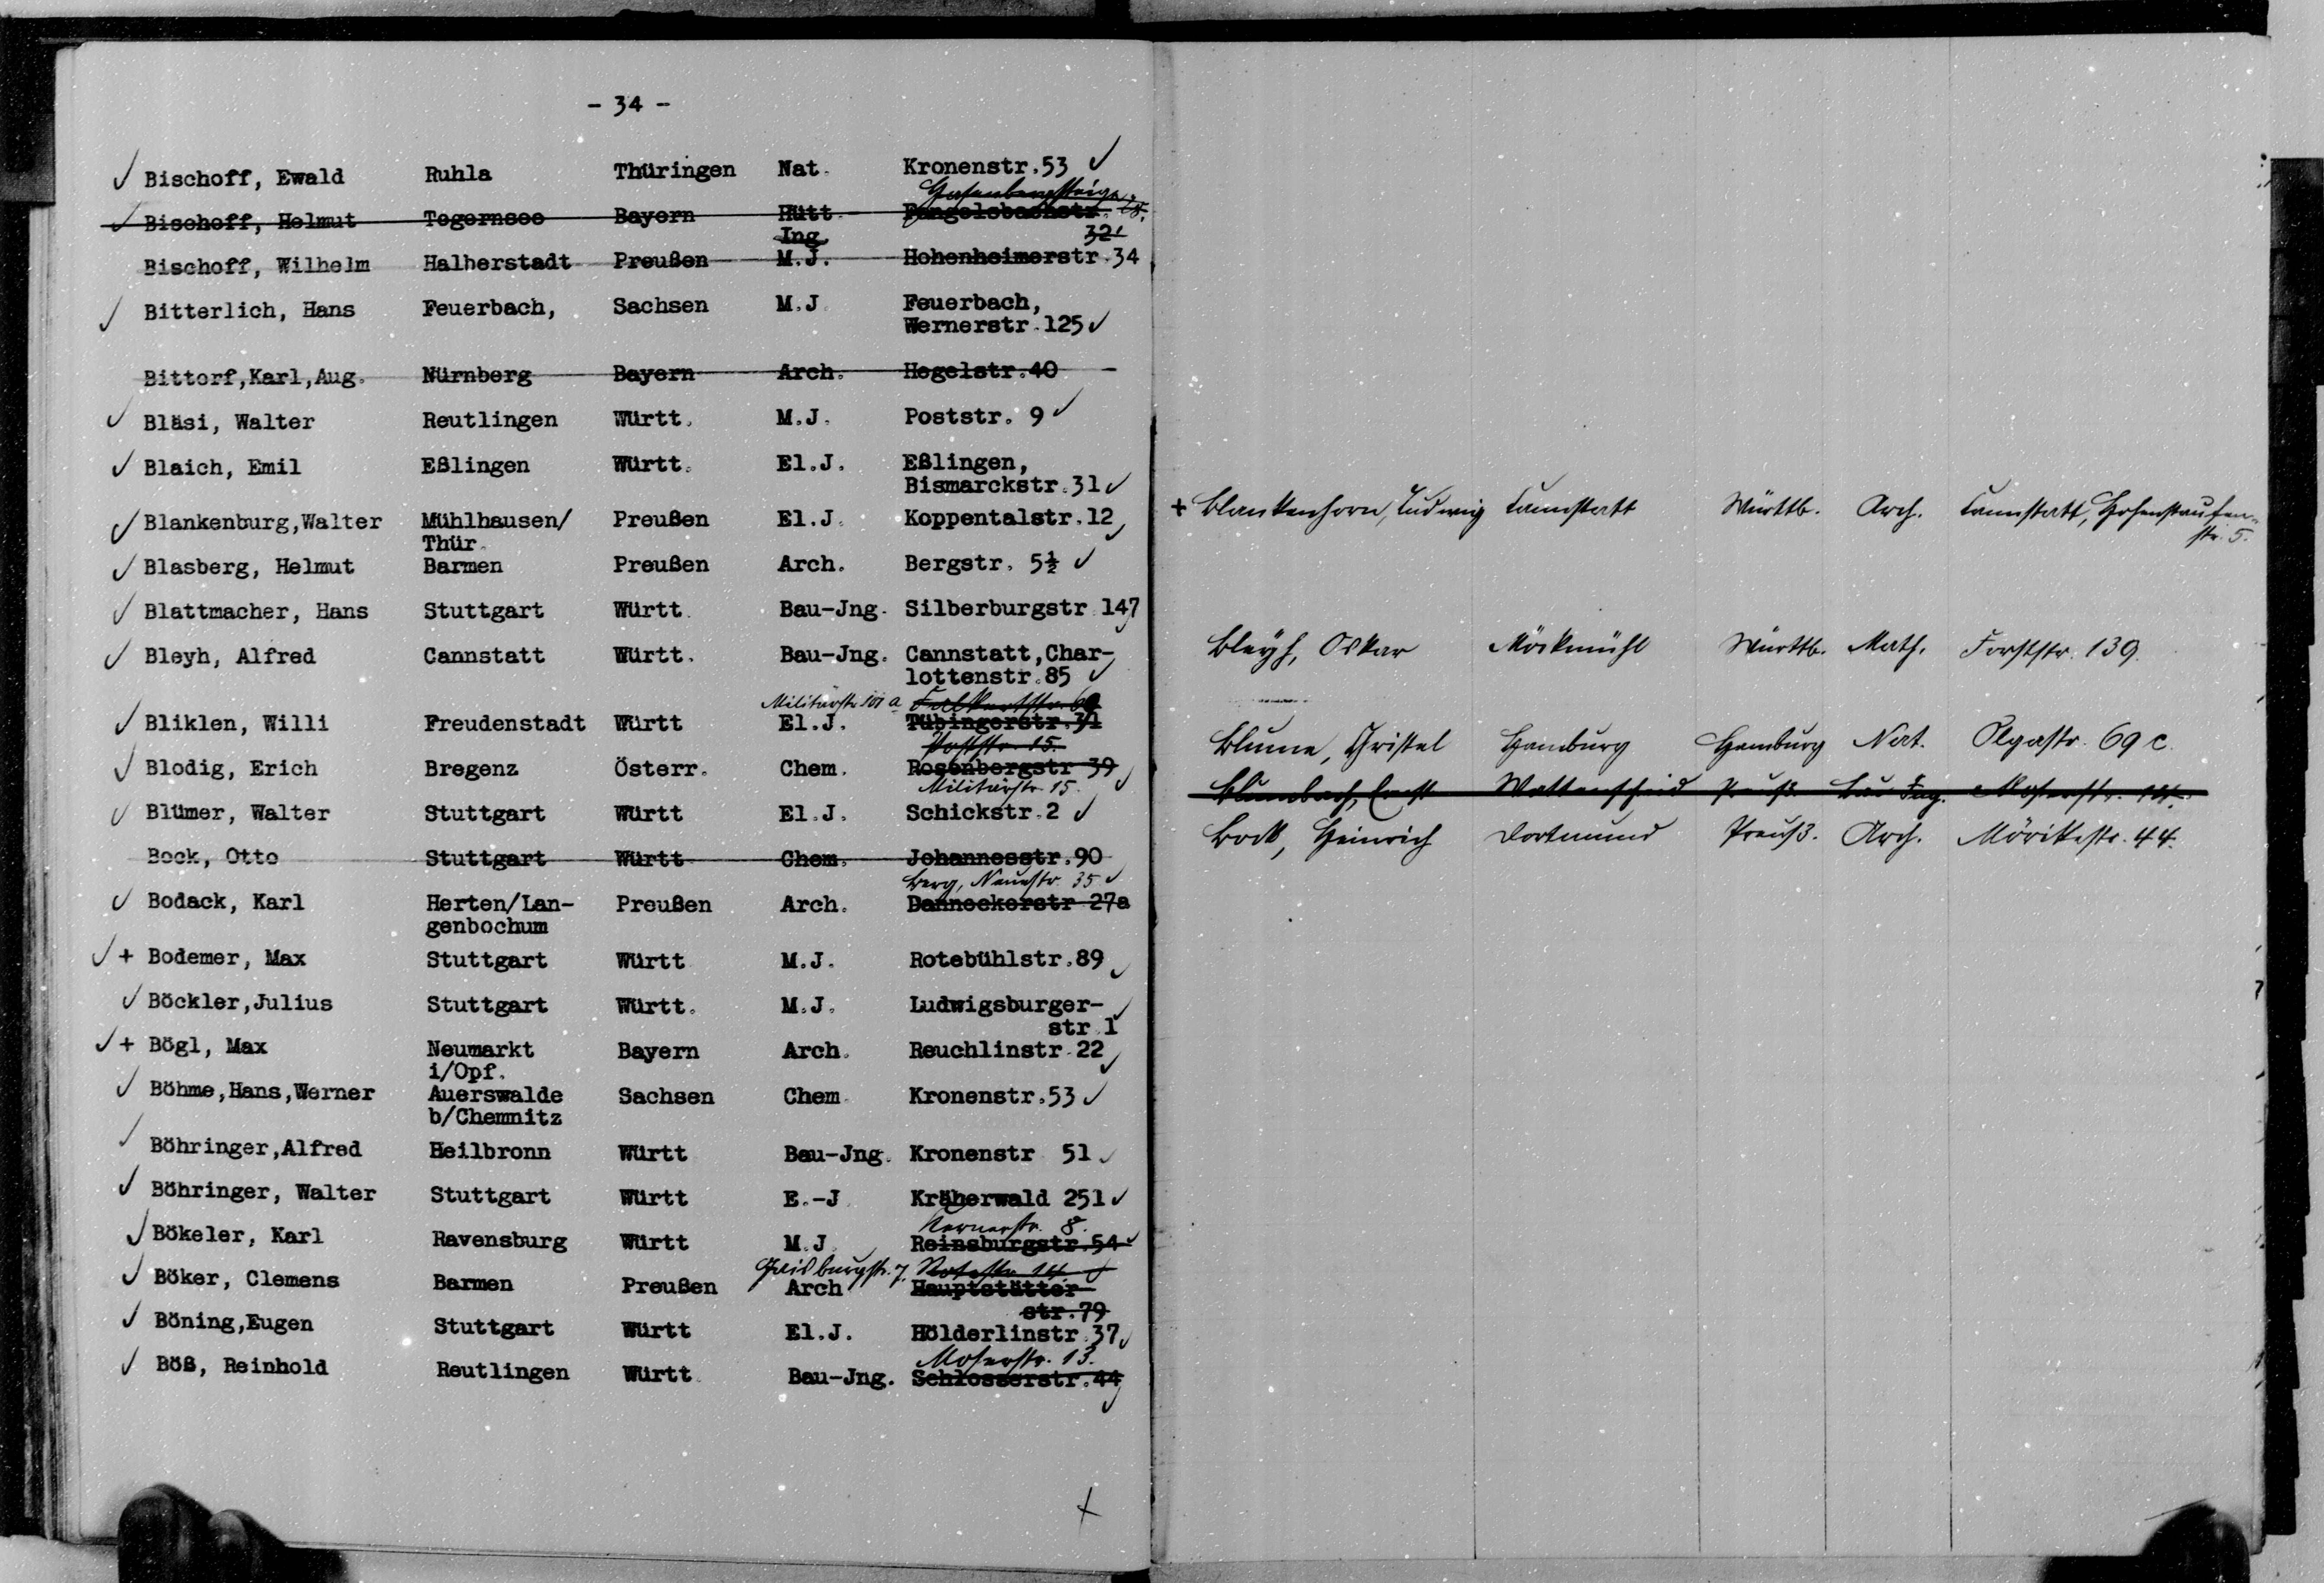 - 34 -
✓ Bischoff, Ewald Ruhla Thüringen Nat. Kronenstr.53 ✓
Hasenbergsteige 28.
✓ Bischoff, Helmut Tegernsee Bayern Hütt Fangelsbachstr.
Ing. 32
Bischoff, Wilhelm Halberstadt Preußen M.J. Hohenheimerstr.34
✓ Bitterlich, Hans Feuerbach, Sachsen M.J. Feuerbach,
Wernerstr.125 ✓
Bittorf,Karl,Aug. Nürnberg Bayern Arch. Hegelstr.40 -
✓ Bläsi, Walter Reutlingen Württ. M.J. Poststr. 9 ✓
✓ Blaich, Emil Eßlingen Württ. El.J. Eßlingen,
Bismarckstr.31 ✓
✓ Blankenburg,Walter Mühlhausen/ Preußen El.J. Koppentalstr.12 ✓
Thür.
✓ Blasberg, Helmut Barmen Preußen Arch. Bergstr. 5½ ✓
✓ Blattmacher, Hans Stuttgart Württ. Bau-Jng. Silberburgstr 147 ✓
✓ Bleyh, Alfred Cannstatt Württ. Bau-Jng. Cannstatt,Char-
lottenstr.85 ✓
Militärstr. 101 a Falkertstr. 60
✓ Bliklen, Willi Freudenstadt Württ El.J. Tübingerstr.31
Poststr. 15.
✓ Blodig, Erich Bregenz Österr. Chem. Rosenbergstr 39
Militärstr. 15. ✓
✓ Blümer, Walter Stuttgart Württ El.J. Schickstr.2 ✓
Bock, Otto Stuttgart Württ Chem. Johannesstr.90
Berg, Neuestr. 35 ✓
✓ Bodack, Karl Herten/Lan- Preußen Arch. Danneckerstr 27a
genbochum
✓ + Bodemer, Max Stuttgart Württ M.J. Rotebühlstr.89 ✓
✓ Böckler,Julius Stuttgart Württ. M.J. Ludwigsburger- ✓
str.1
✓ + Bögl, Max Neumarkt Bayern Arch. Reuchlinstr.22 ✓
i/Opf.
✓ Böhme,Hans,Werner Auerswalde Sachsen Chem. Kronenstr.53 ✓
b/Chemnitz
✓ Böhringer,Alfred Heilbronn Württ Bau-Jng. Kronenstr 51 ✓
✓ Böhringer, Walter Stuttgart Württ E.-J Kräherwald 251 ✓
Kernerstr. 8.
✓ Bökeler, Karl Ravensburg Württ M.J. Reinsburgstr.54 ✓
Gaisburgstr. 7. Rotestr. 14 ✓
✓ Böker, Clemens Barmen Preußen Arch Hauptstätter-
str.79
✓ Böning,Eugen Stuttgart Württ El.J. Hölderlinstr.37 ✓
Moserstr. 13.
✓ Böß, Reinhold Reutlingen Württ. Bau-Jng. Schlosserstr.44 ✓
+ Blankenhorn, Ludwig Cannstatt Württb. Arch. Cannstatt, Hohenstaufen-
str. 5.
Bleyh, Oskar Möckmühl Württb. Math. Forststr. 139.
Blume, Christel Hamburg Hamburg Nat. Olgastr. 69 c.
Blumbach, Ernst Wattenscheid Preuß. Bau Ing. Moserstr. 14.
Bock, Heinrich Dortmund Preuß. Arch. Mörikestr. 44.